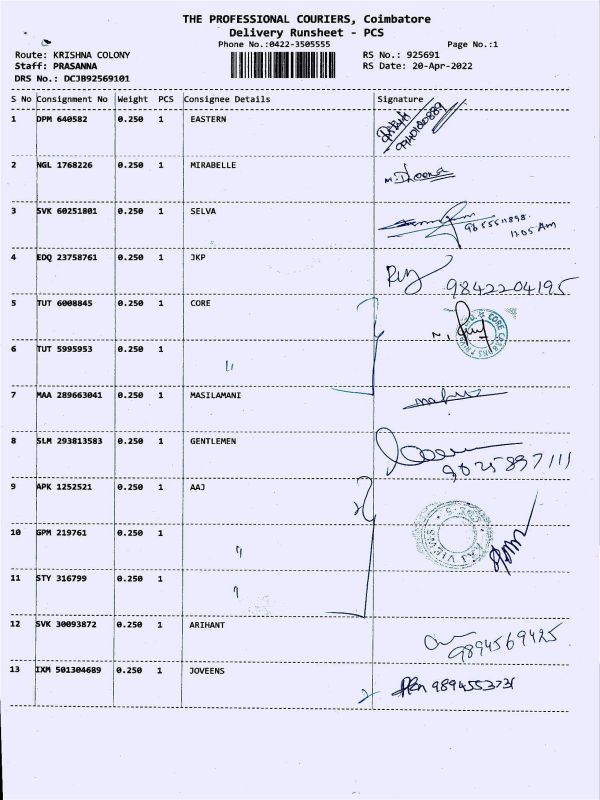 THE PROFESSIONAL COURIERS, Coimbatore
Delivery Runsheet - PCS
Phone No.:0422-3505555 Page No.:1
Route: KRISHNA COLONY RS No.: 925691
Staff: PRASANNA RS Date: 20-Apr-2022
DRS No.: DCJB92569101
S No Consignment No Weight PCS Consignee Details Signature
1 DPM 640582 0.250 1 EASTERN
2 NGL 1768226 0.250 1 MIRABELLE
3 SVK 60251801 0.250 1 SELVA
11.05 Am
4 EDQ 23758761 0.250 1 JKP
9842204195
5 TUT 6008845 0.250 1 CORE
6 TUT 5995953 0.250 1 "
7 MAA 289663041 0.250 1 MASILAMANI
8 SLM 293813583 0.250 1 GENTLEMEN
9025897111
9 APK 1252521 0.250 1 AAJ
10 GPM 219761 0.250 1 "
11 STY 316799 0.250 1 "
12 SVK 30093872 0.250 1 ARIHANT
9894569425
13 IXM 501304689 0.250 1 JOVEENS 9894553731